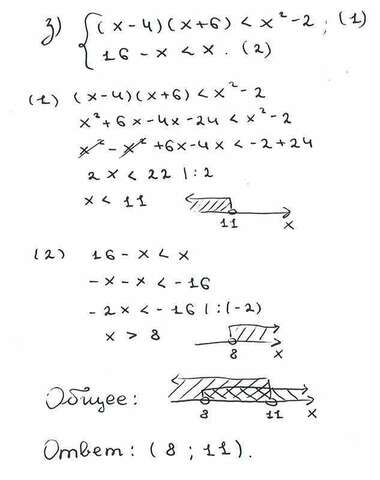 з) { (x-4)(x+6) < x²-2; (1)
16-x < x. (2)
(1) (x-4)(x+6) < x²-2
x²+6x-4x-24 < x²-2
x²-x²+6x-4x < -2+24
2x < 22 |:2
x < 11
11 x
(2) 16-x < x
-x-x < -16
-2x < -16 |:(-2)
x > 8
8 x
Общее:
8 11 x
Ответ: (8; 11).